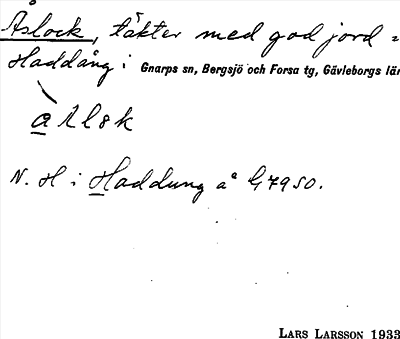 Åslock, täkter med god jord =
Haddång i Gnarps sn, Bergsjö och Forsa tg, Gävleborgs län
N. H i Haddung å G 7950.
LARS LARSSON 1933